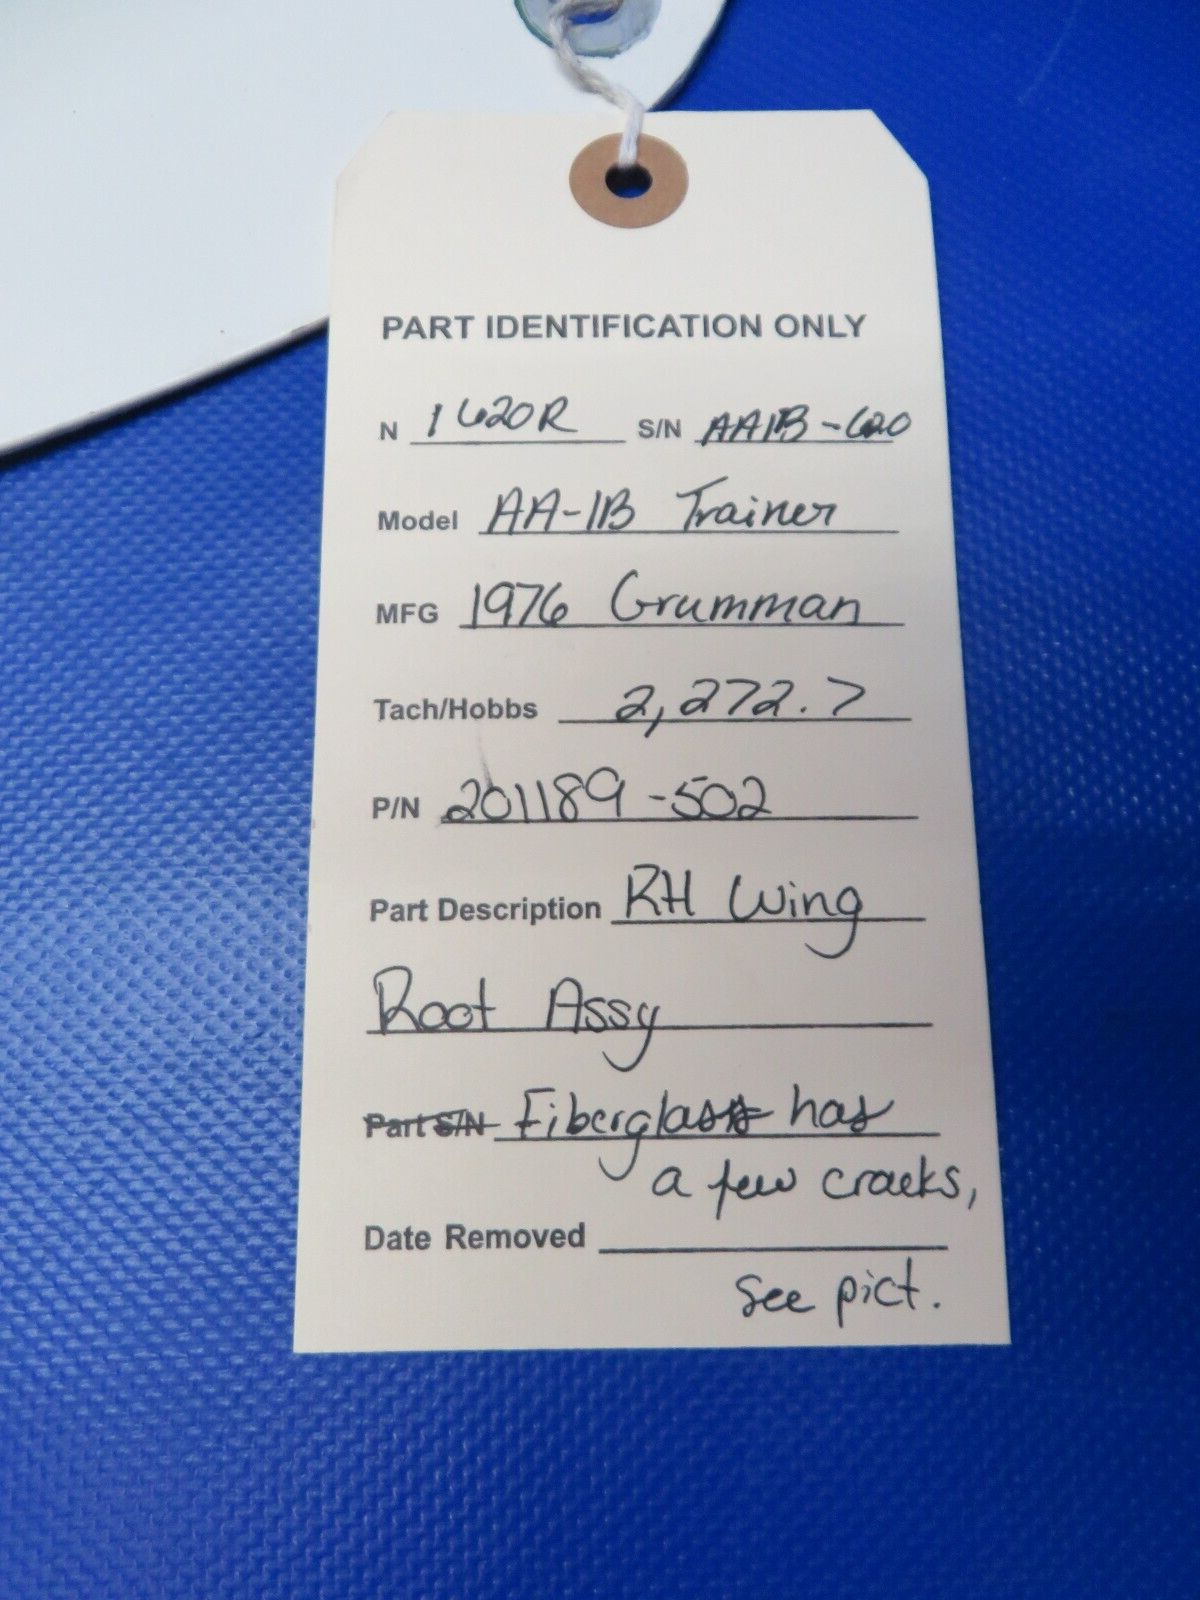 PART IDENTIFICATION ONLY
N 1620R S/N AA1B-620
Model AA-1B Trainer
MFG 1976 Grumman
Tach/Hobbs 2,272.7
P/N 201189-502
Part Description RH Wing
Root Assy
Part S/N Fiberglass has
a few cracks,
Date Removed
See pict.